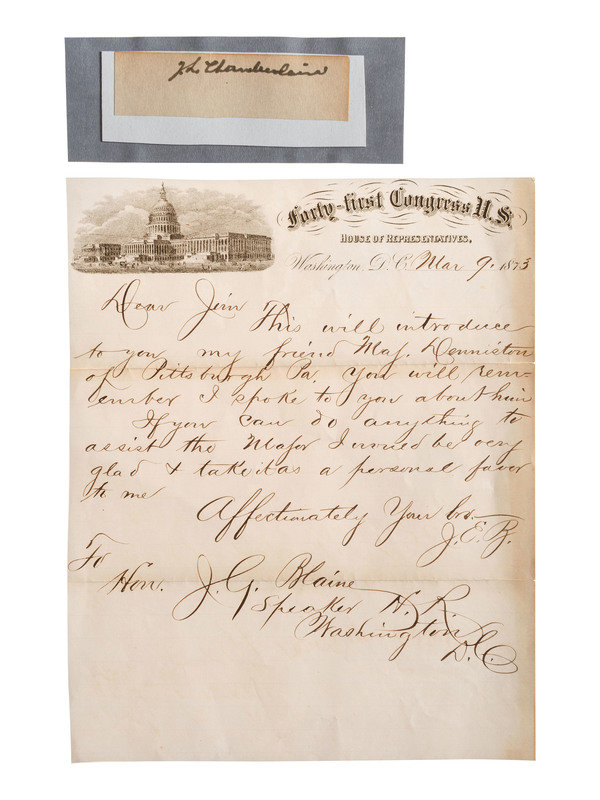 J L Chamberlain
Forty-first Congress U.S.
House of Representatives,
Washington, D.C. Mar 9. 1873
Dear Jim This will introduce
to you my friend Maj. Denniston
of Pittsburgh Pa. You will rem-
ember I spoke to you about him
If you can do anything to
assist the Major I would be very
glad & take it as a personal favor
to me
Affectionately Your bro.
J. E. B.
To
Hon. J. G. Blaine
Speaker H. R.
Washington
D.C.